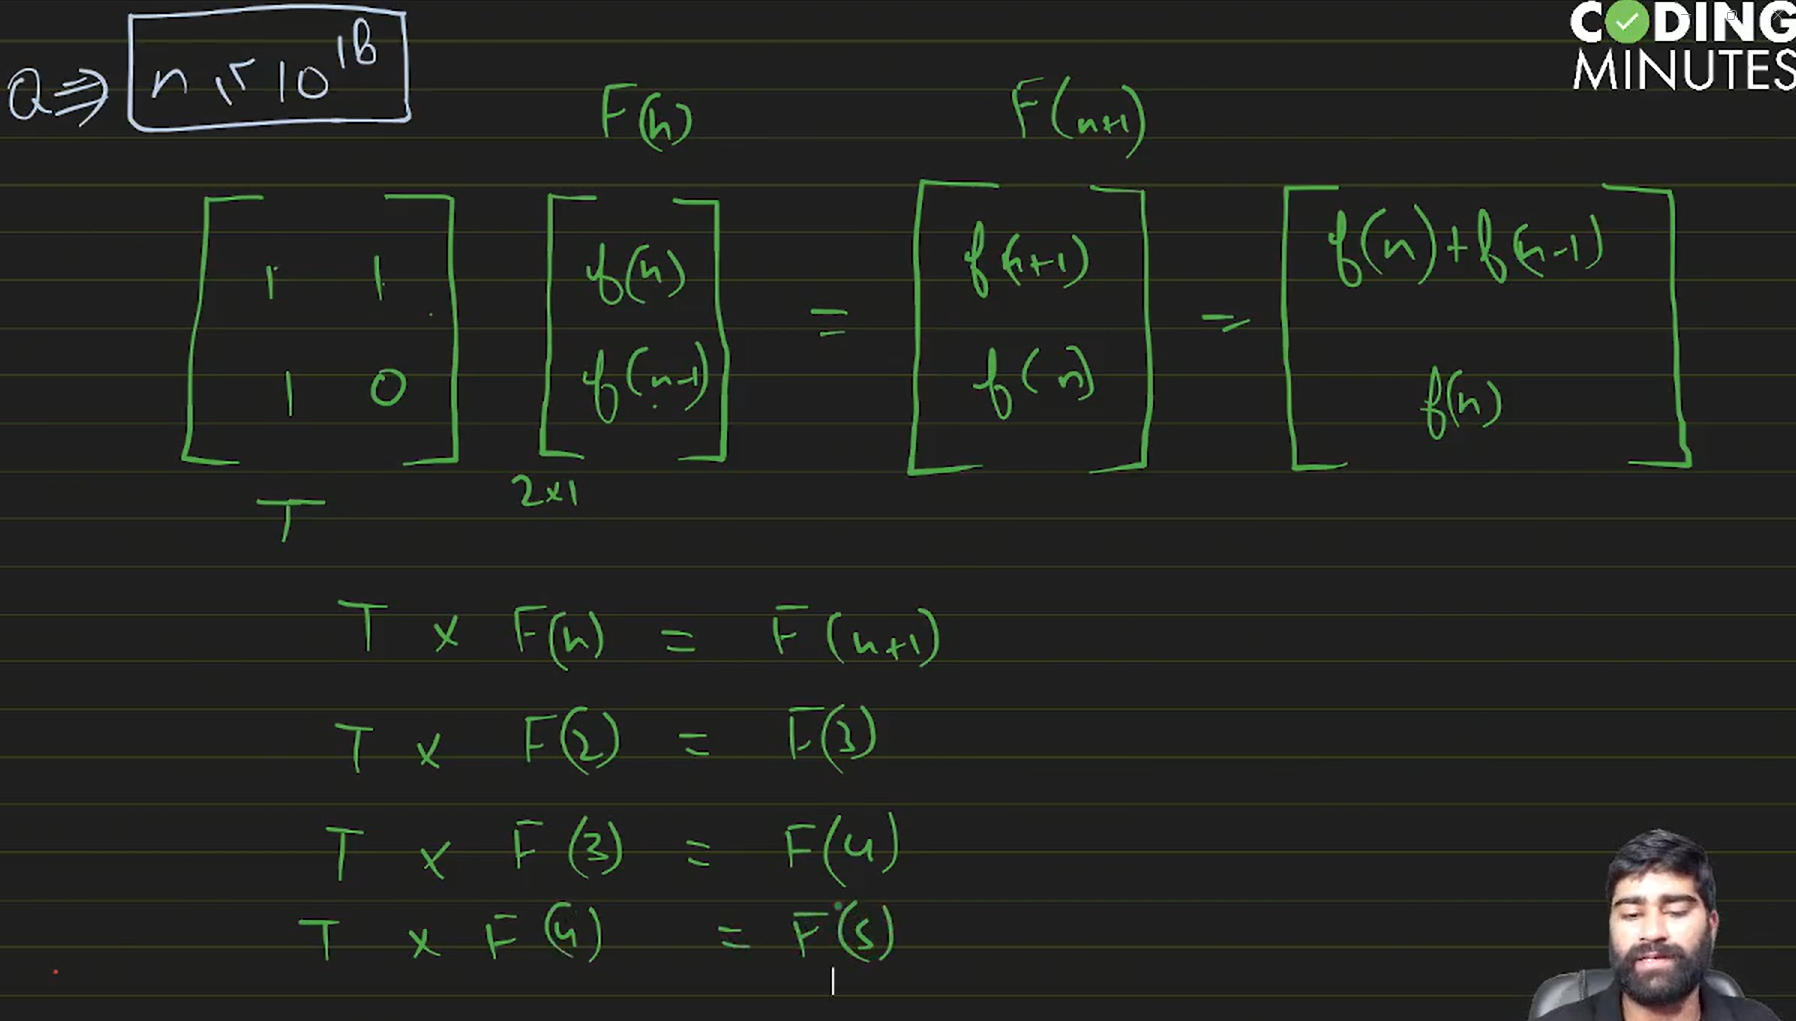 CODING
MINUTES
Q ⇒ n is 10^18
F(n) F(n+1)
1 1 f(n) = f(n+1) = f(n)+f(n-1)
1 0 f(n-1) f(n) f(n)
T 2x1
T x F(n) = F(n+1)
T x F(2) = F(3)
T x F(3) = F(4)
T x F(4) = F(5)